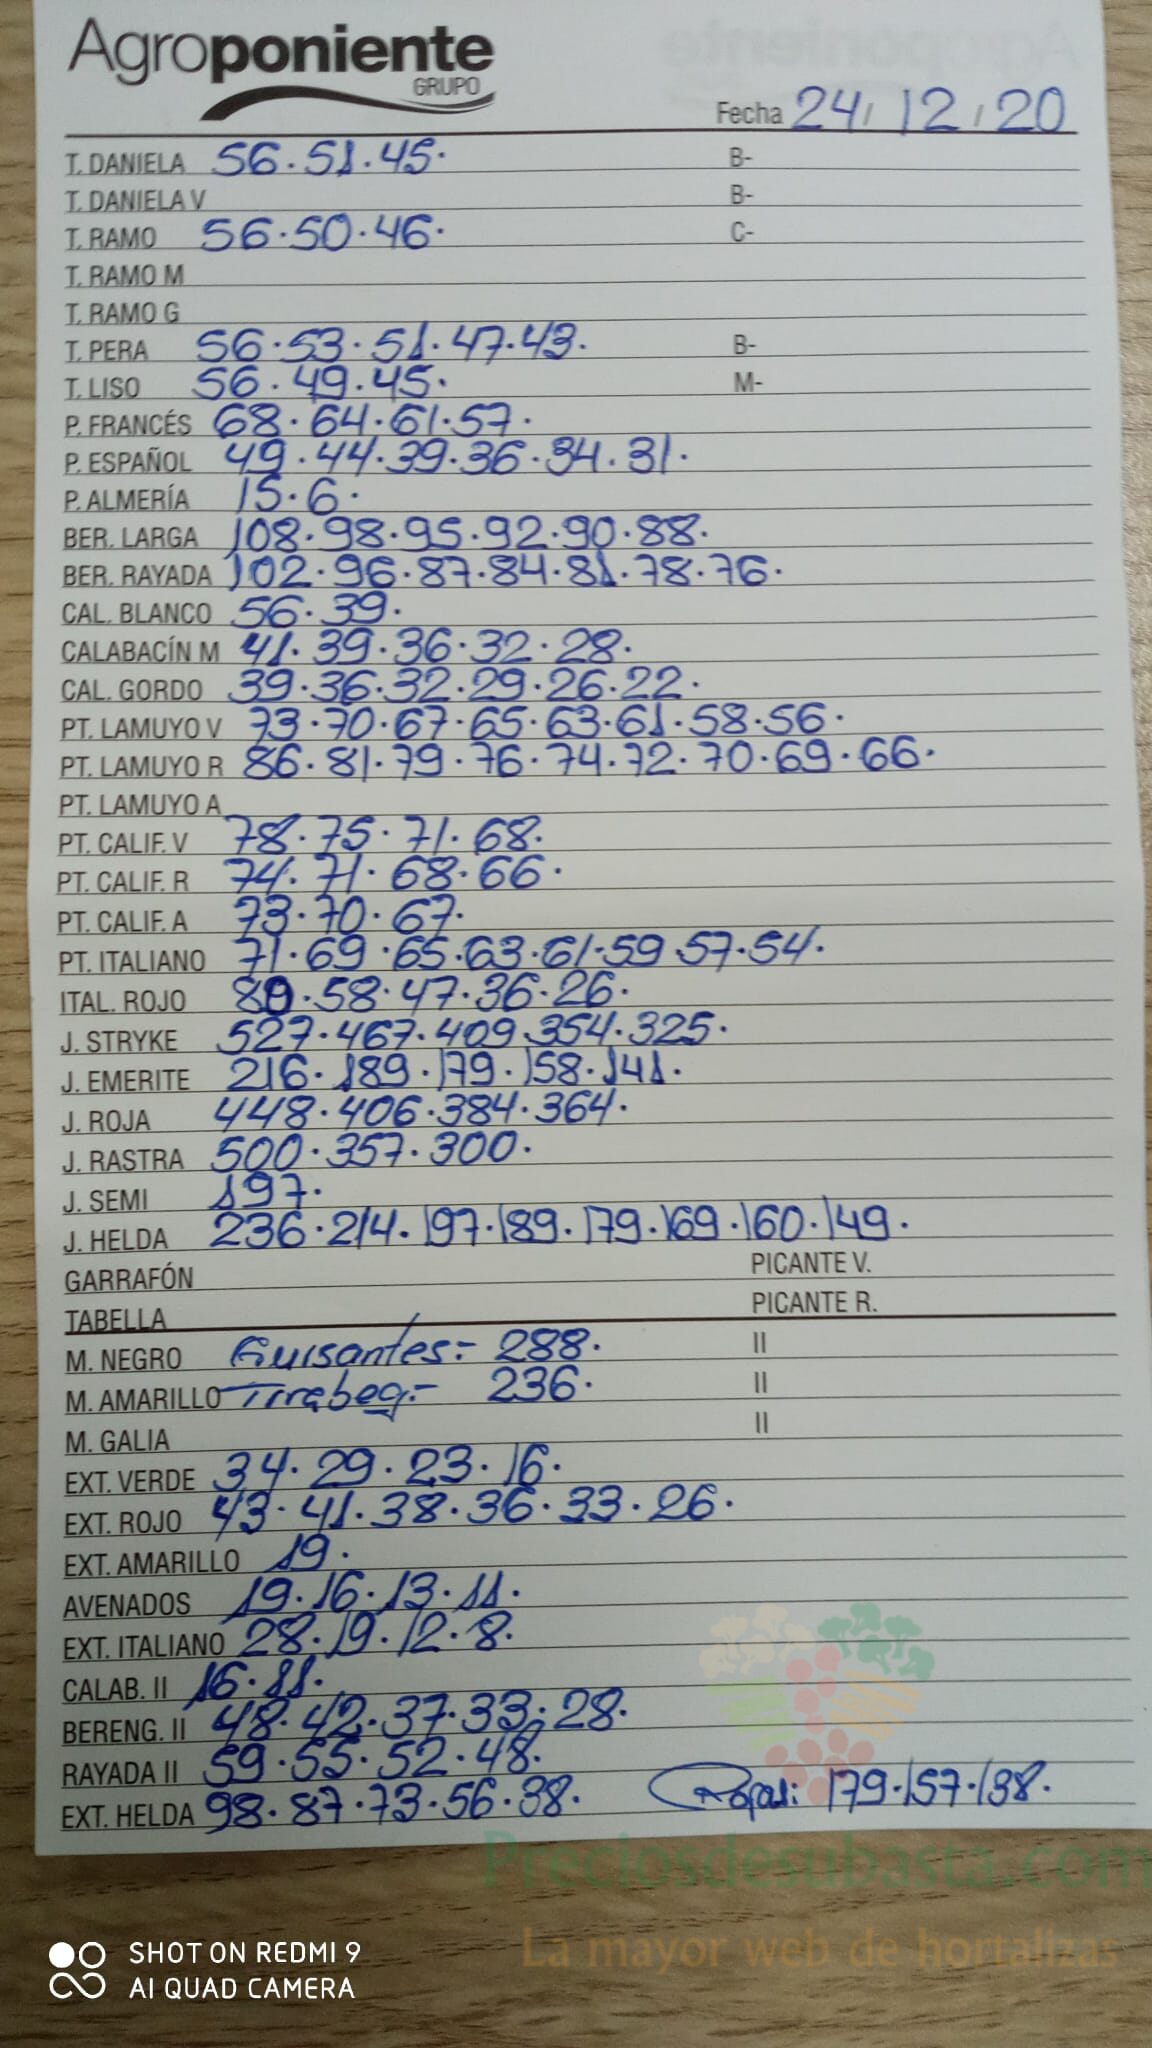 Agroponiente
GRUPO
Fecha 24/12/20
T. DANIELA 56.51.45. B-
T. DANIELA V B-
T. RAMO 56.50.46. C-
T. RAMO M
T. RAMO G
T. PERA 56.53.51.47.43. B-
T. LISO 56.49.45. M-
P. FRANCÉS 68.64.61.57.
P. ESPAÑOL 49.44.39.36.34.31.
P. ALMERÍA 15.6.
BER. LARGA 108.98.95.92.90.88.
BER. RAYADA 102.96.87.84.81.78.76.
CAL. BLANCO 56.39.
CALABACÍN M 41.39.36.32.28.
CAL. GORDO 39.36.32.29.26.22.
PT. LAMUYO V 73.70.67.65.63.61.58.56.
PT. LAMUYO R 86.81.79.76.74.72.70.69.66.
PT. LAMUYO A
PT. CALIF. V 78.75.71.68.
PT. CALIF. R 74.71.68.66.
PT. CALIF. A 73.70.67.
PT. ITALIANO 71.69.65.63.61.59.57.54.
ITAL. ROJO 80.58.47.36.26.
J. STRYKE 527.467.409.354.325.
J. EMERITE 216.189.179.158.141.
J. ROJA 448.406.384.364.
J. RASTRA 500.357.300.
J. SEMI 197.
J. HELDA 236.214.197.189.179.169.160.149.
GARRAFÓN PICANTE V.
TABELLA PICANTE R.
M. NEGRO Guisantes:- 288. II
M. AMARILLO Tirabeq:- 236. II
M. GALIA II
EXT. VERDE 34.29.23.16.
EXT. ROJO 43.41.38.36.33.26.
EXT. AMARILLO 19.
AVENADOS 19.16.13.11.
EXT. ITALIANO 28.19.12.8.
CALAB. II 16.11.
BERENG. II 48.42.37.33.28.
RAYADA II 59.55.52.48.
EXT. HELDA 98.87.73.56.38. Rojas: 179.157.138.
Preciosdesubasta.com
La mayor web de hortalizas
SHOT ON REDMI 9
AI QUAD CAMERA